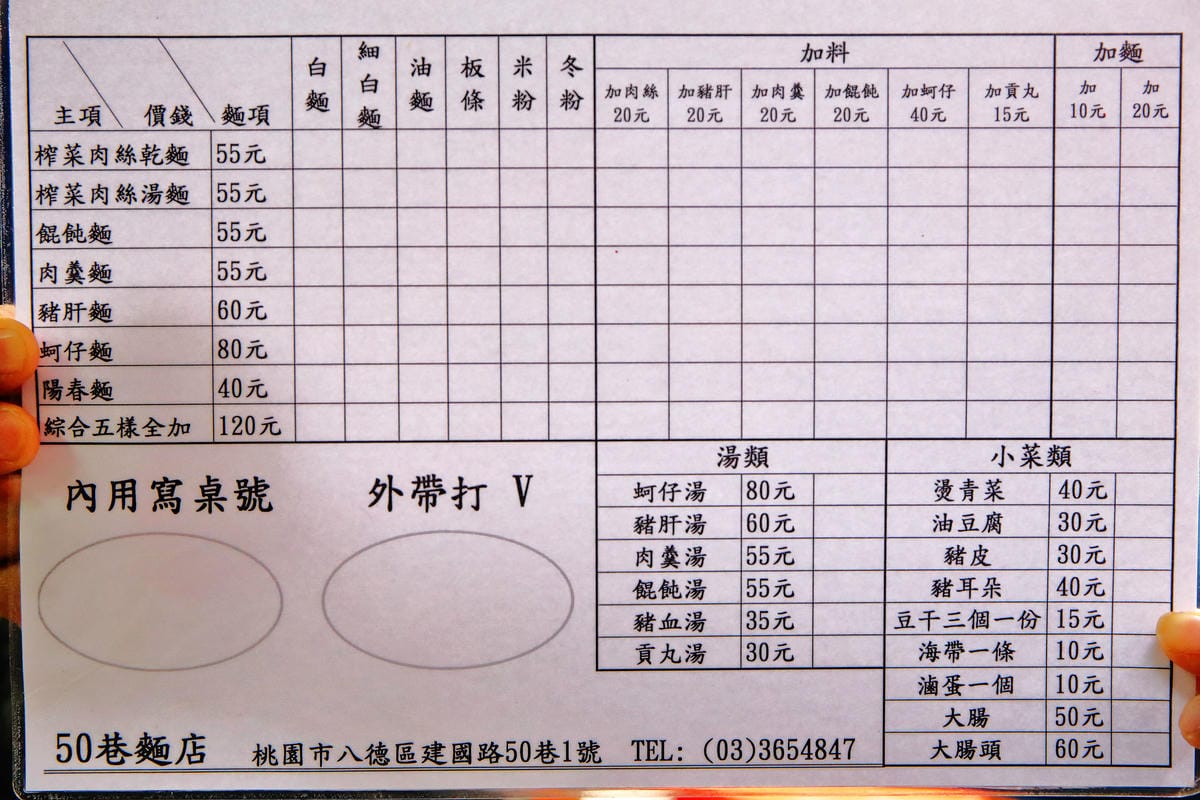 主項 價錢 麵項 白麵 細白麵 油麵 板條 米粉 冬粉 加料 加麵
加肉絲 加豬肝 加肉羹 加餛飩 加蚵仔 加貢丸 加 加
20元 20元 20元 20元 40元 15元 10元 20元
榨菜肉絲乾麵 55元
榨菜肉絲湯麵 55元
餛飩麵 55元
肉羹麵 55元
豬肝麵 60元
蚵仔麵 80元
陽春麵 40元
綜合五樣全加 120元
內用寫桌號 外帶打 V
湯類
蚵仔湯 80元
豬肝湯 60元
肉羹湯 55元
餛飩湯 55元
豬血湯 35元
貢丸湯 30元
小菜類
燙青菜 40元
油豆腐 30元
豬皮 30元
豬耳朵 40元
豆干三個一份 15元
海帶一條 10元
滷蛋一個 10元
大腸 50元
大腸頭 60元
50巷麵店 桃園市八德區建國路50巷1號 TEL: (03)3654847